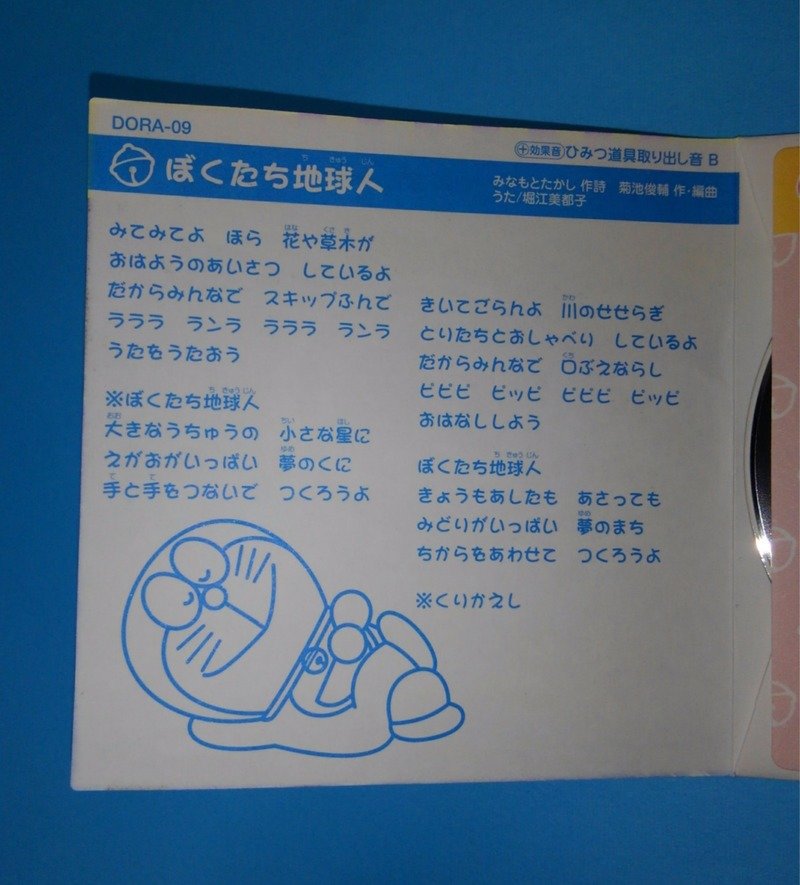 DORA-09
＋効果音 ひみつ道具取り出し音 B
ぼくたち地球人
ち きゅう じん
みなもとたかし 作詩　菊池俊輔 作・編曲
うた/堀江美都子
みてみてよ　ほら　花や草木が
はな くさ き
おはようのあいさつ　しているよ
だからみんなで　スキップふんで
ラララ　ランラ　ラララ　ランラ
うたをうたおう
※ぼくたち地球人
ち きゅう じん
大きなうちゅうの　小さな星に
おお ちい ほし
えがおがいっぱい　夢のくに
ゆめ
手と手をつないで　つくろうよ
て て
きいてごらんよ　川のせせらぎ
かわ
とりたちとおしゃべり　しているよ
だからみんなで　口ぶえならし
くち
ピピピ　ピッピ　ピピピ　ピッピ
おはなししよう
ぼくたち地球人
ち きゅう じん
きょうもあしたも　あさっても
みどりがいっぱい　夢のまち
ゆめ
ちからをあわせて　つくろうよ
※くりかえし